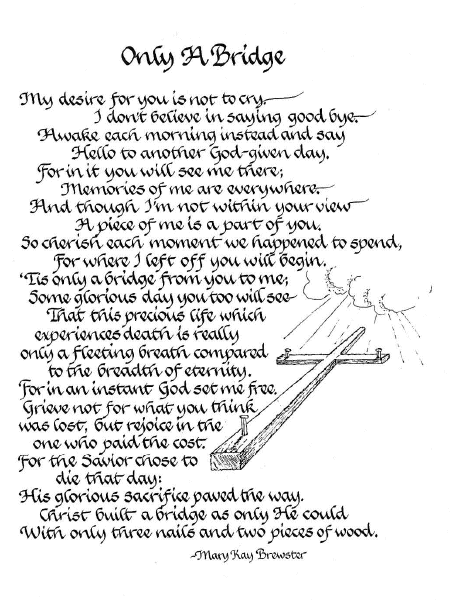 Only A Bridge
My desire for you is not to cry,
I don't believe in saying good bye.
Awake each morning instead and say
Hello to another God-given day.
For in it you will see me there;
Memories of me are everywhere.
And though I'm not within your view
A piece of me is a part of you.
So cherish each moment we happened to spend,
For where I left off you will begin.
'Tis only a bridge from you to me;
Some glorious day you too will see
That this precious life which
experiences death is really
only a fleeting breath compared
to the breadth of eternity.
For in an instant God set me free.
Grieve not for what you think
was lost, but rejoice in the
one who paid the cost.
For the Savior chose to
die that day:
His glorious sacrifice paved the way.
Christ built a bridge as only He could
With only three nails and two pieces of wood.
-Mary Kay Brewster